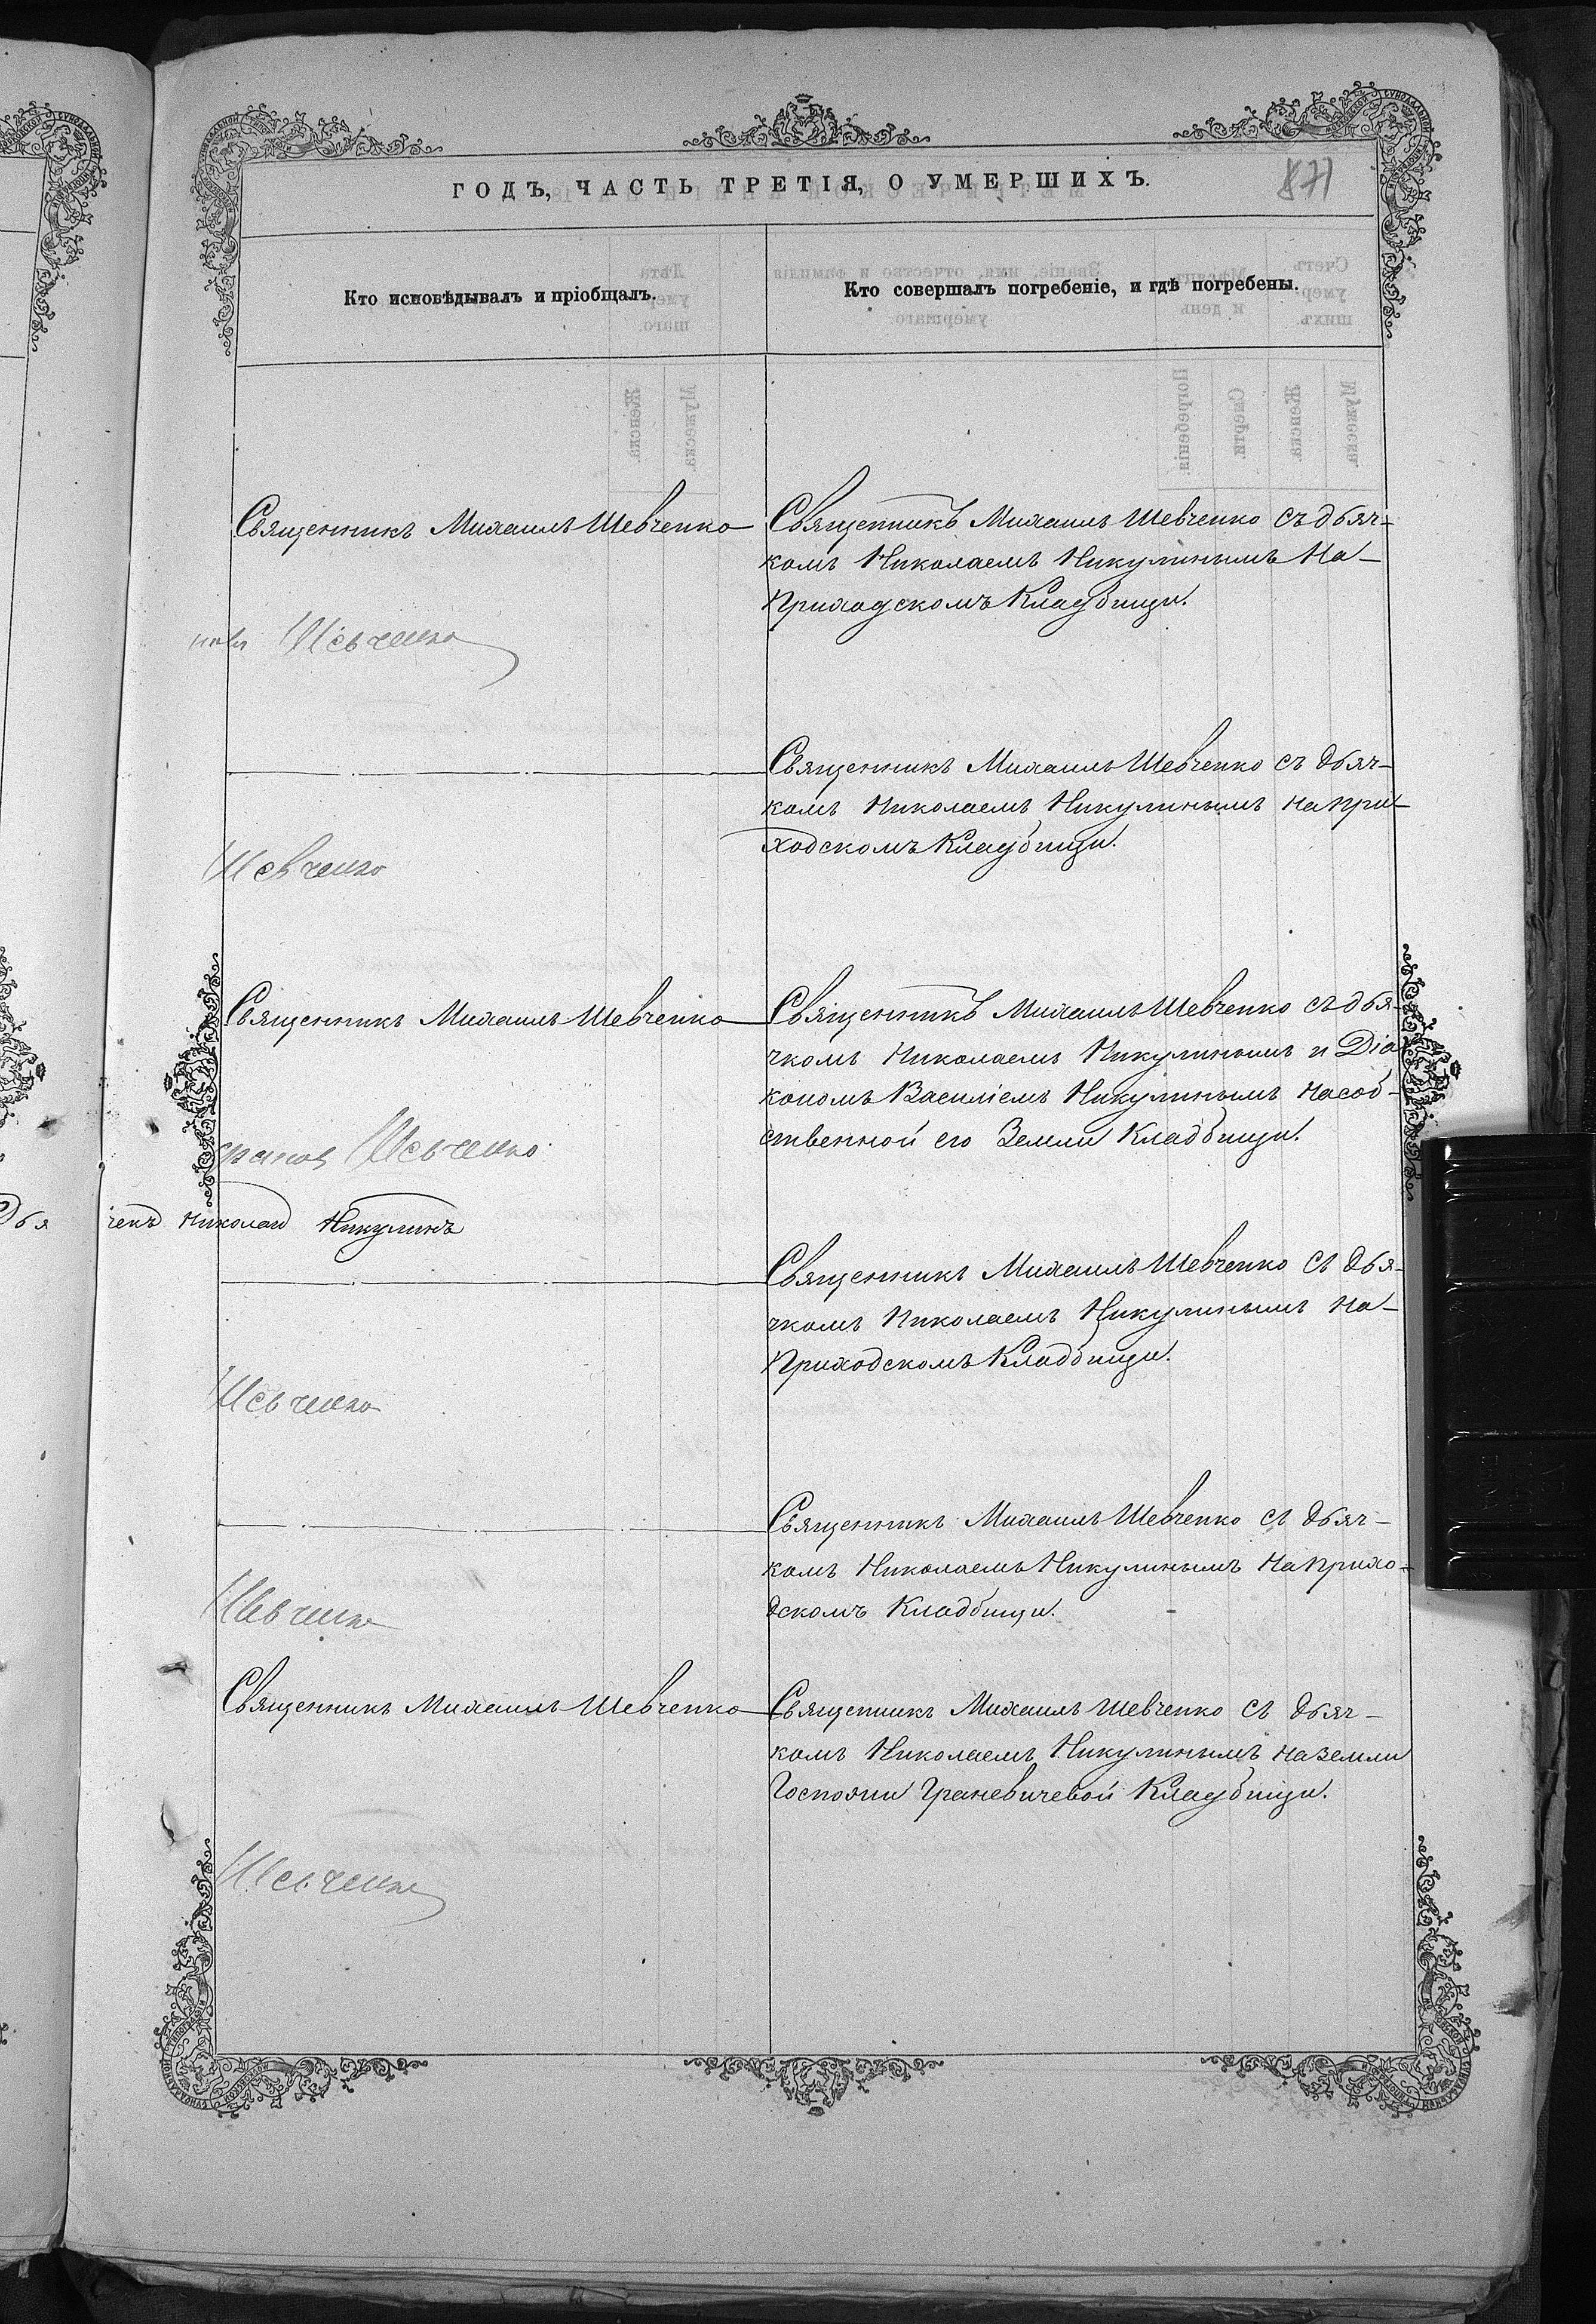 ГОДЪ, ЧАСТЬ ТРЕТІЯ, О УМЕРШИХЪ.
871
Кто исповѣдывалъ и пріобщалъ.
Кто совершалъ погребеніе, и гдѣ погребены.
Священникъ Михаилъ Шевченко
Священникъ Михаилъ Шевченко съ дьяч-
комъ Николаемъ Никулинымъ На-
Приходскомъ Кладбищи.
Шевченко
Священникъ Михаилъ Шевченко съ дьяч-
комъ Николаемъ Никулинымъ на при-
ходскомъ Кладбищи.
Шевченко
Священникъ Михаилъ Шевченко
Священникъ Михаилъ Шевченко съ дья-
чкомъ Николаемъ Никулинымъ и Діа
кономъ Василіемъ Никулинымъ на соб-
ственной его Земли Кладбищи.
Шевченко
Дья чекъ Николай Никулинъ
Священникъ Михаилъ Шевченко съ дья-
чкомъ Николаемъ Никулинымъ На-
Приходскомъ Кладбищи.
Шевченко
Священникъ Михаилъ Шевченко съ дьяч-
комъ Николаемъ Никулинымъ На прихо-
дскомъ Кладбищи.
Шевченко
Священникъ Михаилъ Шевченко
Священникъ Михаилъ Шевченко съ дьяч-
комъ Николаемъ Никулинымъ на земли
Госпожи Граневичевой Кладбищи.
Шевченко